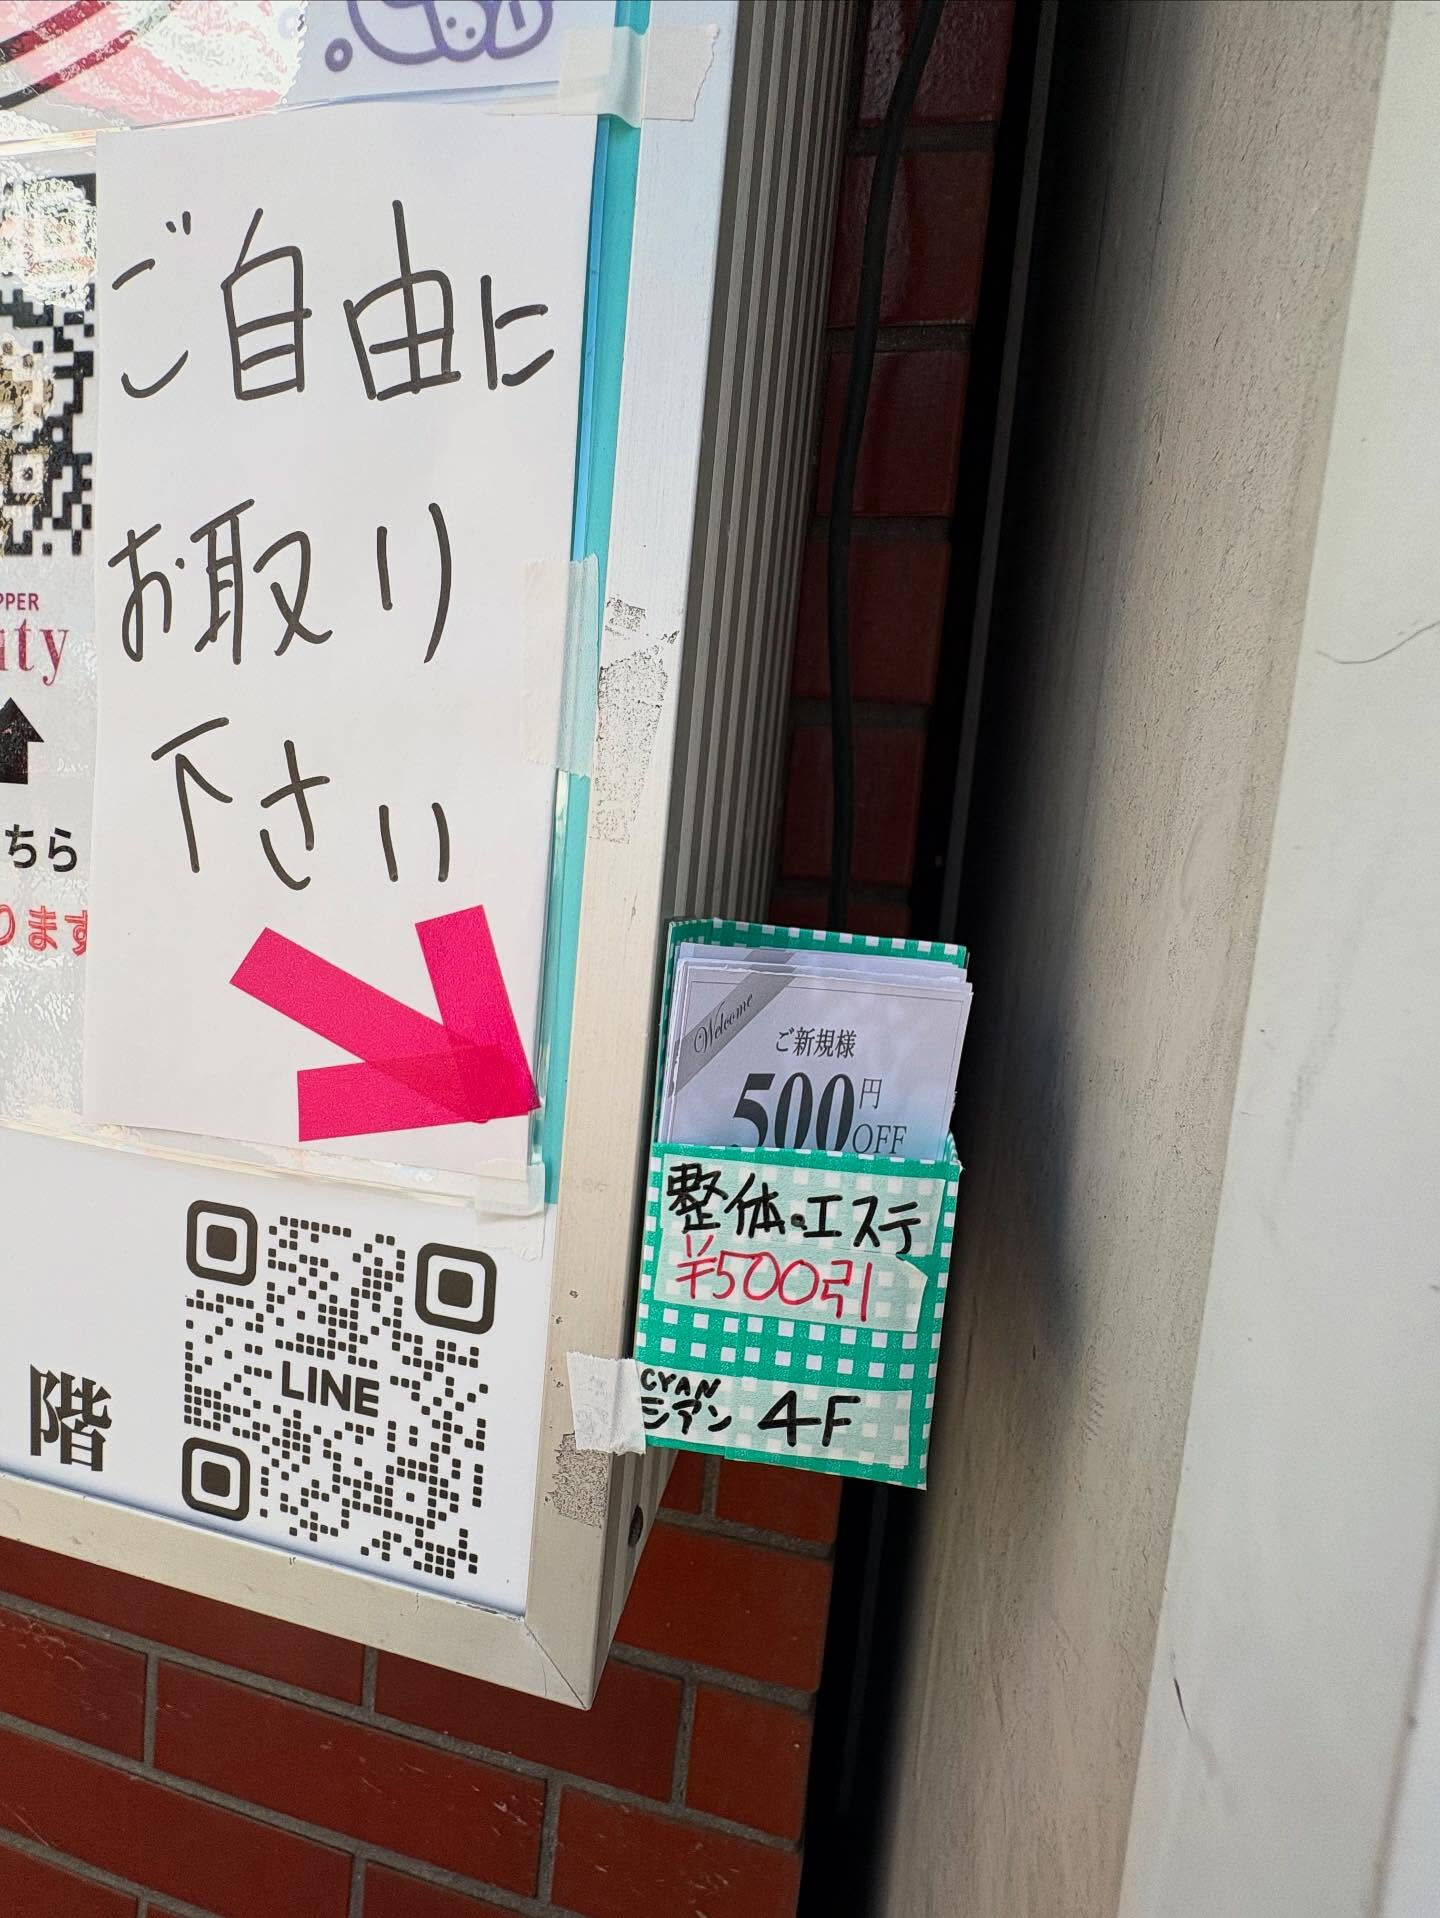 ご自由に
お取り
下さい
PPER
uty
ちら
ります
階
LINE
Welcome
ご新規様
500円
OFF
整体・エステ
¥500引
CYAN
シアン 4F